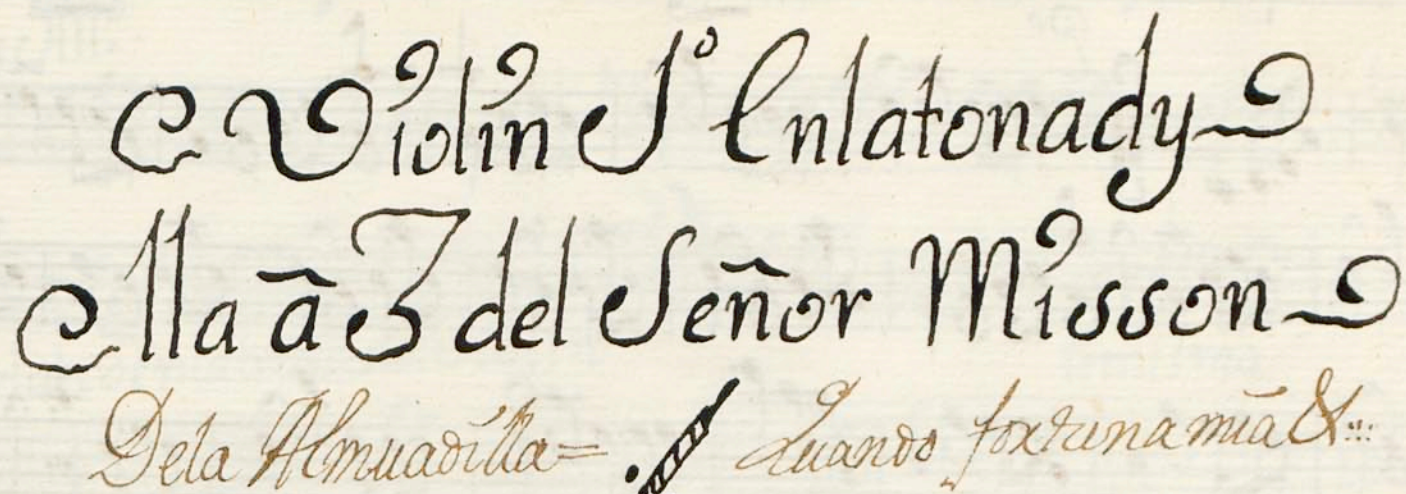 Violin 1º Enlatonady
lla â 3 del Señor Misson
Dela Almuadilla= Quando fortuna mia &.